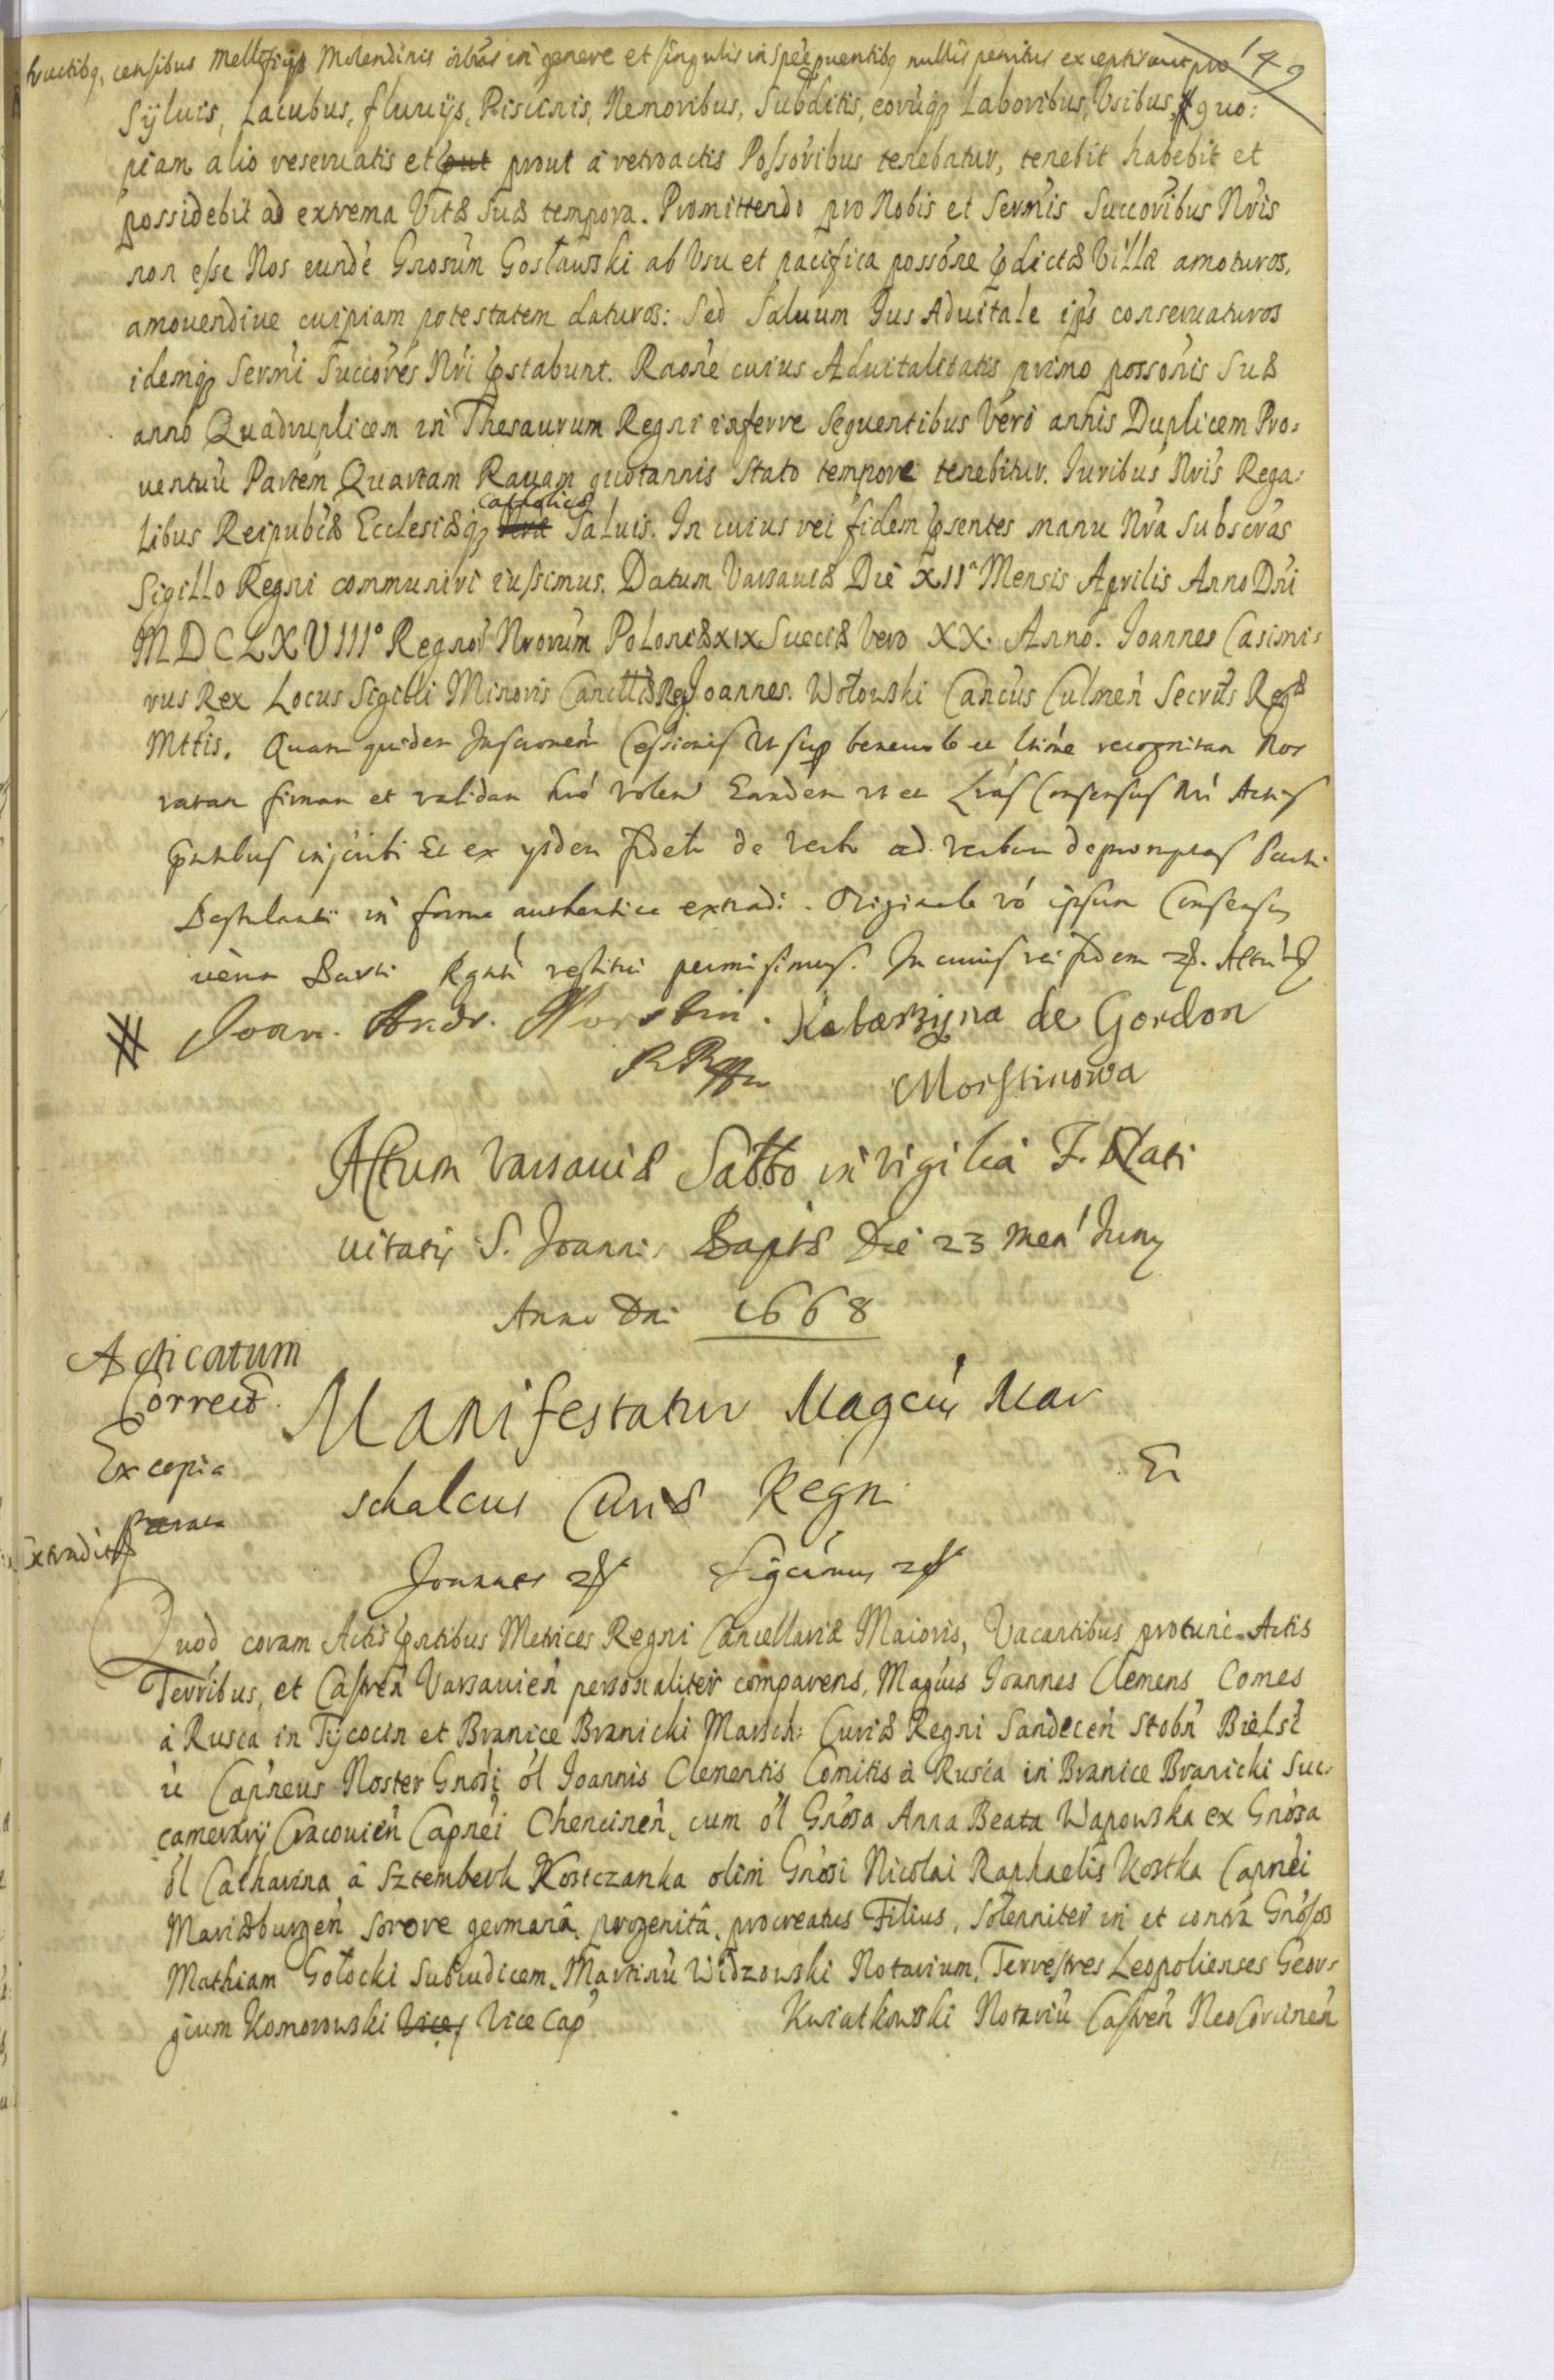 fructibq, censibus Mellificijs Molendinis in genere et singulis in spee quentibq nullis penitus exceptis aut pro 149
Syluis, Lacubus, fluuijs, Piscinis, Nemoribus, Subditis, eorúqз Laboribus, Vsibus, quo:
piam alio reseruatis et prout à retroactis Possoribus tenebatur, tenebit habebit et
possidebit ad extrema Vitæ Suæ tempora. Promittendo pro Nobis et Sermis Succoribus Nris
non esse Nos eundè Gnosum Gosławski ab Vsu et pacifica possóne pdictæ Villæ amoturos,
amouendiue cuipiam potestatem daturos: Sed Saluum Jus Aduitale ips conseruaturos
idemqз Sermi Succorés Nri pstabunt. Raoné cuius Aduitalitatis primo possonis Suæ
anno Quadruplicem in Thesaurum Regni inferre Sequentibus Verò annis Duplicem Pro:
uentuù Partem Quartam Rauam quotannis Stato tempore tenebitur. Juribus Nris Rega:
Catholicæ
libus Reipubcæ Ecclesiæqз Saluis. In cuius rei fidem psentes manu Nra Subscras
Sigillo Regni communiri iussimus. Datum Varsauiæ Die XIIa Mensis Aprilis Anno Dni
MDCLXVIIIo Regnor Nrorum Poloniæ XIX Sueciæ Vero XX. Anno. Joannes Casimi:
rus Rex Locus Sigilli Minoris Cancllæ Reg Joannes Wołowski Cancus Culmen Secrtis Regæ
Mttis. Quam quidem Inscronem Cessionis Vt sup beneuole et ltime recognitam Nos
ratam firmam et validam hrè volen Eandem vt et Lras Consensus Nri Actis
pntibus inscribi Et ex ysdem fidelr de verbo ad verbum depromptas Parti
Postulanti in forma authentica extradi. Originale vò ipsum Consensus
Parti Rgnti restitui permisimus. In cuius rei fidem &. Actu
Joan. Andr. Morstin. Katarzyna de Gordon
Morstinowa
Actum Varsauiæ Sabbo in vigilia F. Nati
uitatis S. Joannis Baptæ Die 23 Men Juny
Anno Dni 1668
Acticatum
Correct.
Ex copia
Extradit
Manifestatur Magcus Mar
schalcus Curiæ Regni
Joannes &
Quod coram Actis pntibus Metrices Regni Cancellariæ Maioris, Vacantibus protunc Actis
Terribus, et Castren Varsauien personaliter comparens, Magcus Joannes Clemens Comes
à Rusca in Tycocin et Branice Branicki Marsch: Curiæ Regni Sandecen Stobn Bielst
ù Capneus Noster Gnosi ol Joannis Clementis Comitis à Rusca in Branice Branicki Suc:
camerarij Cracouien Capnei Chencinen, cum ol Gnosa Anna Beata Wapowska ex Gnosa
ol Catharina à Sztemberk Kostczanka olim Gnosi Nicolai Raphaelis Kostka Capnei
Mariæburgen Sorore germanâ, progenitâ, procreatus Filius, Solenniter in et contra Gnosos
Mathiam Gołocki Subiudicem, Martinù Widzowski Notarium, Terrestres Leopolienses Geor:
gium Komorowski Vices Vice Cap Kwiatkowski Notariù Castren NeoCorcinen